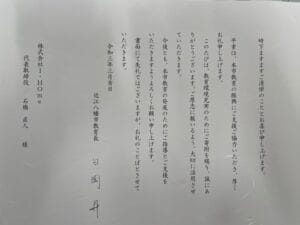 時下ますますご清栄のこととお喜び申し上げます。
平素は、本市教育の振興にご支援ご協力いただき、厚く
お礼申し上げます。
このたびは、教育環境充実のためにご寄附を賜り、誠にあ
りがとうございます。ご厚志に報いるよう、大切に活用させ
ていただきます。
今後とも、本市教育の発展のためにご指導とご支援を
いただきますようよろしくお願い申し上げます。
書面にて失礼ではございますが、お礼のことばとさせて
いただきます。
令和三年三月吉日
近江八幡市教育長
株式会社I・HOme
代表取締役 石橋 直人 様